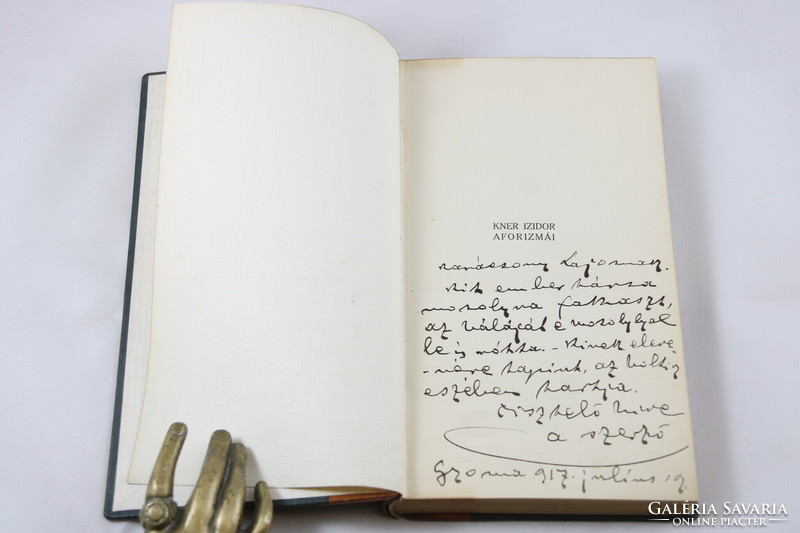 KNER IZIDOR
AFORIZMÁI
Karácsony Lajosnak.
Kit ember társa
mosolyra fakaszt,
az háláját e mosolylyal
le is rótta. - Kinek eleve-
nére tapint, az holtig
eszében tartja.
tisztelő hive
a szerző
Gyoma 917. július 19.
GALÉRIA SAVARIA
ONLINE PIACTÉR